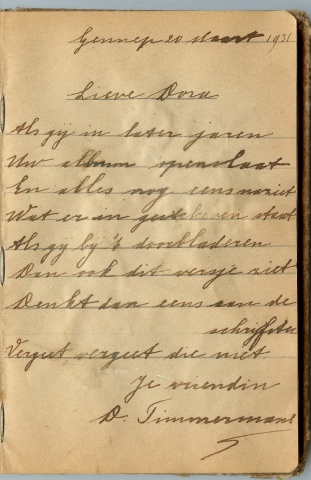 Gennep 20 Maart 1931
Lieve Dora
Als gij in later jaren
Uw album openslaat
En alles nog eens naziet
Wat er in geschreven staat
Als gij by 't doorbladeren
Dan ook dit versje ziet
Denkt dan eens aan de
schrijfster
Vergeet vergeet die niet
Je vriendin
D. Timmermans